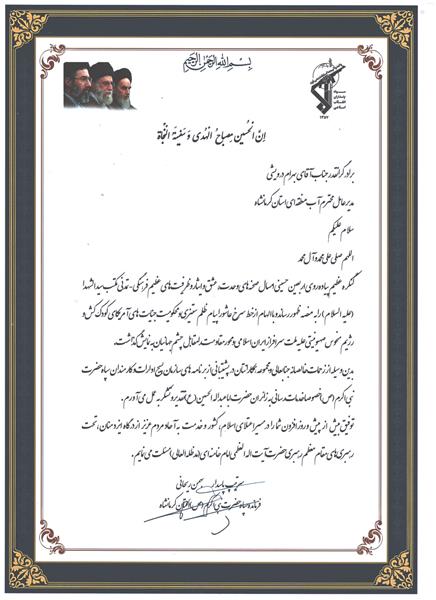 بسم الله الرحمن الرحیم
سپاه
پاسداران
انقلاب
اسلامی
۱۳۵۷
إنّ الحُسین مِصباحُ الهُدی وَ سَفینَةُ النَّجاة
برادر گرانقدر جناب آقای بهرام درویشی
مدیر عامل محترم آب منطقه ای استان کرمانشاه
سلام علیکم
اللهم صلی علی محمد و آل محمد
کنگره عظیم پیاده روی اربعین حسینی امسال صحنه های وحدت، عشق و ایثار و ظرفیت های عظیم فرهنگی-تمدنی مکتب سیدالشهدا
(علیه السلام) را به منصه ظهور رساند و با الهام از خط سرخ عاشورا پیام ظلم ستیزی و محکومیت جنایت های آمریکای کودک کش و
رژیم منحوس صهیونیستی علیه ملت سرافراز ایران اسلامی و محور مقاومت در مقابل چشم جهانیان به نمایش گذاشت.
بدین وسیله از زحمات خالصانه جنابعالی و مجموعه همکارانتان در پشتیبانی از برنامه های سازمان بسیج ادارات و کارمندان سپاه حضرت
نبی اکرم (ص) خصوصا خدمات رسانی به زائران حضرت اباعبداله الحسین (ع) تقدیر و تشکر به عمل می آورم.
توفیق بیش از پیش و روز افزون شما را در مسیر اعتلای اسلام، کشور و خدمت به آحاد مردم عزیز از درگاه ایزد منان، تحت
رهبری های مقام معظم رهبری حضرت آیت اله العظمی امام خامنه ای (مدظله العالی) مسئلت می نمایم.
سرتیپ پاسدار بهمن ریحانی
فرمانده سپاه حضرت نبی اکرم (ص) استان کرمانشاه